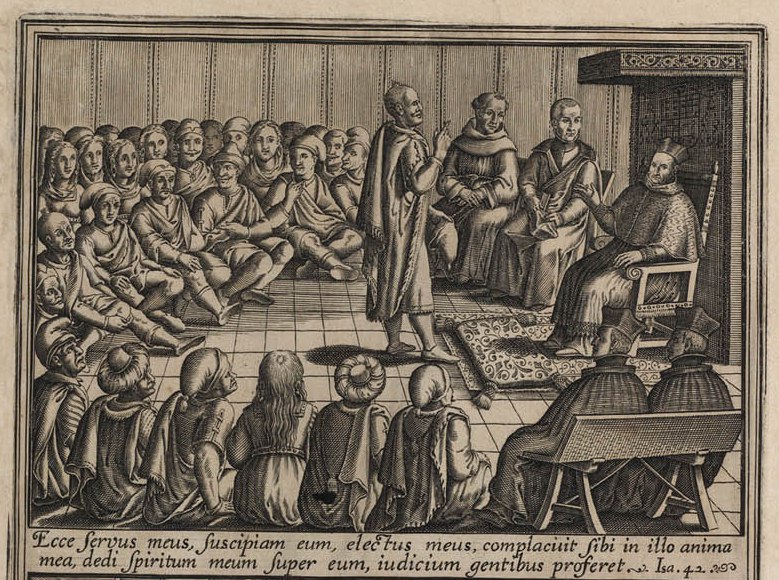 Ecce servus meus, suscipiam eum, electus meus, complacuit sibi in illo anima
mea, dedi spiritum meum super eum, iudicium gentibus proferet. Isa. 42.